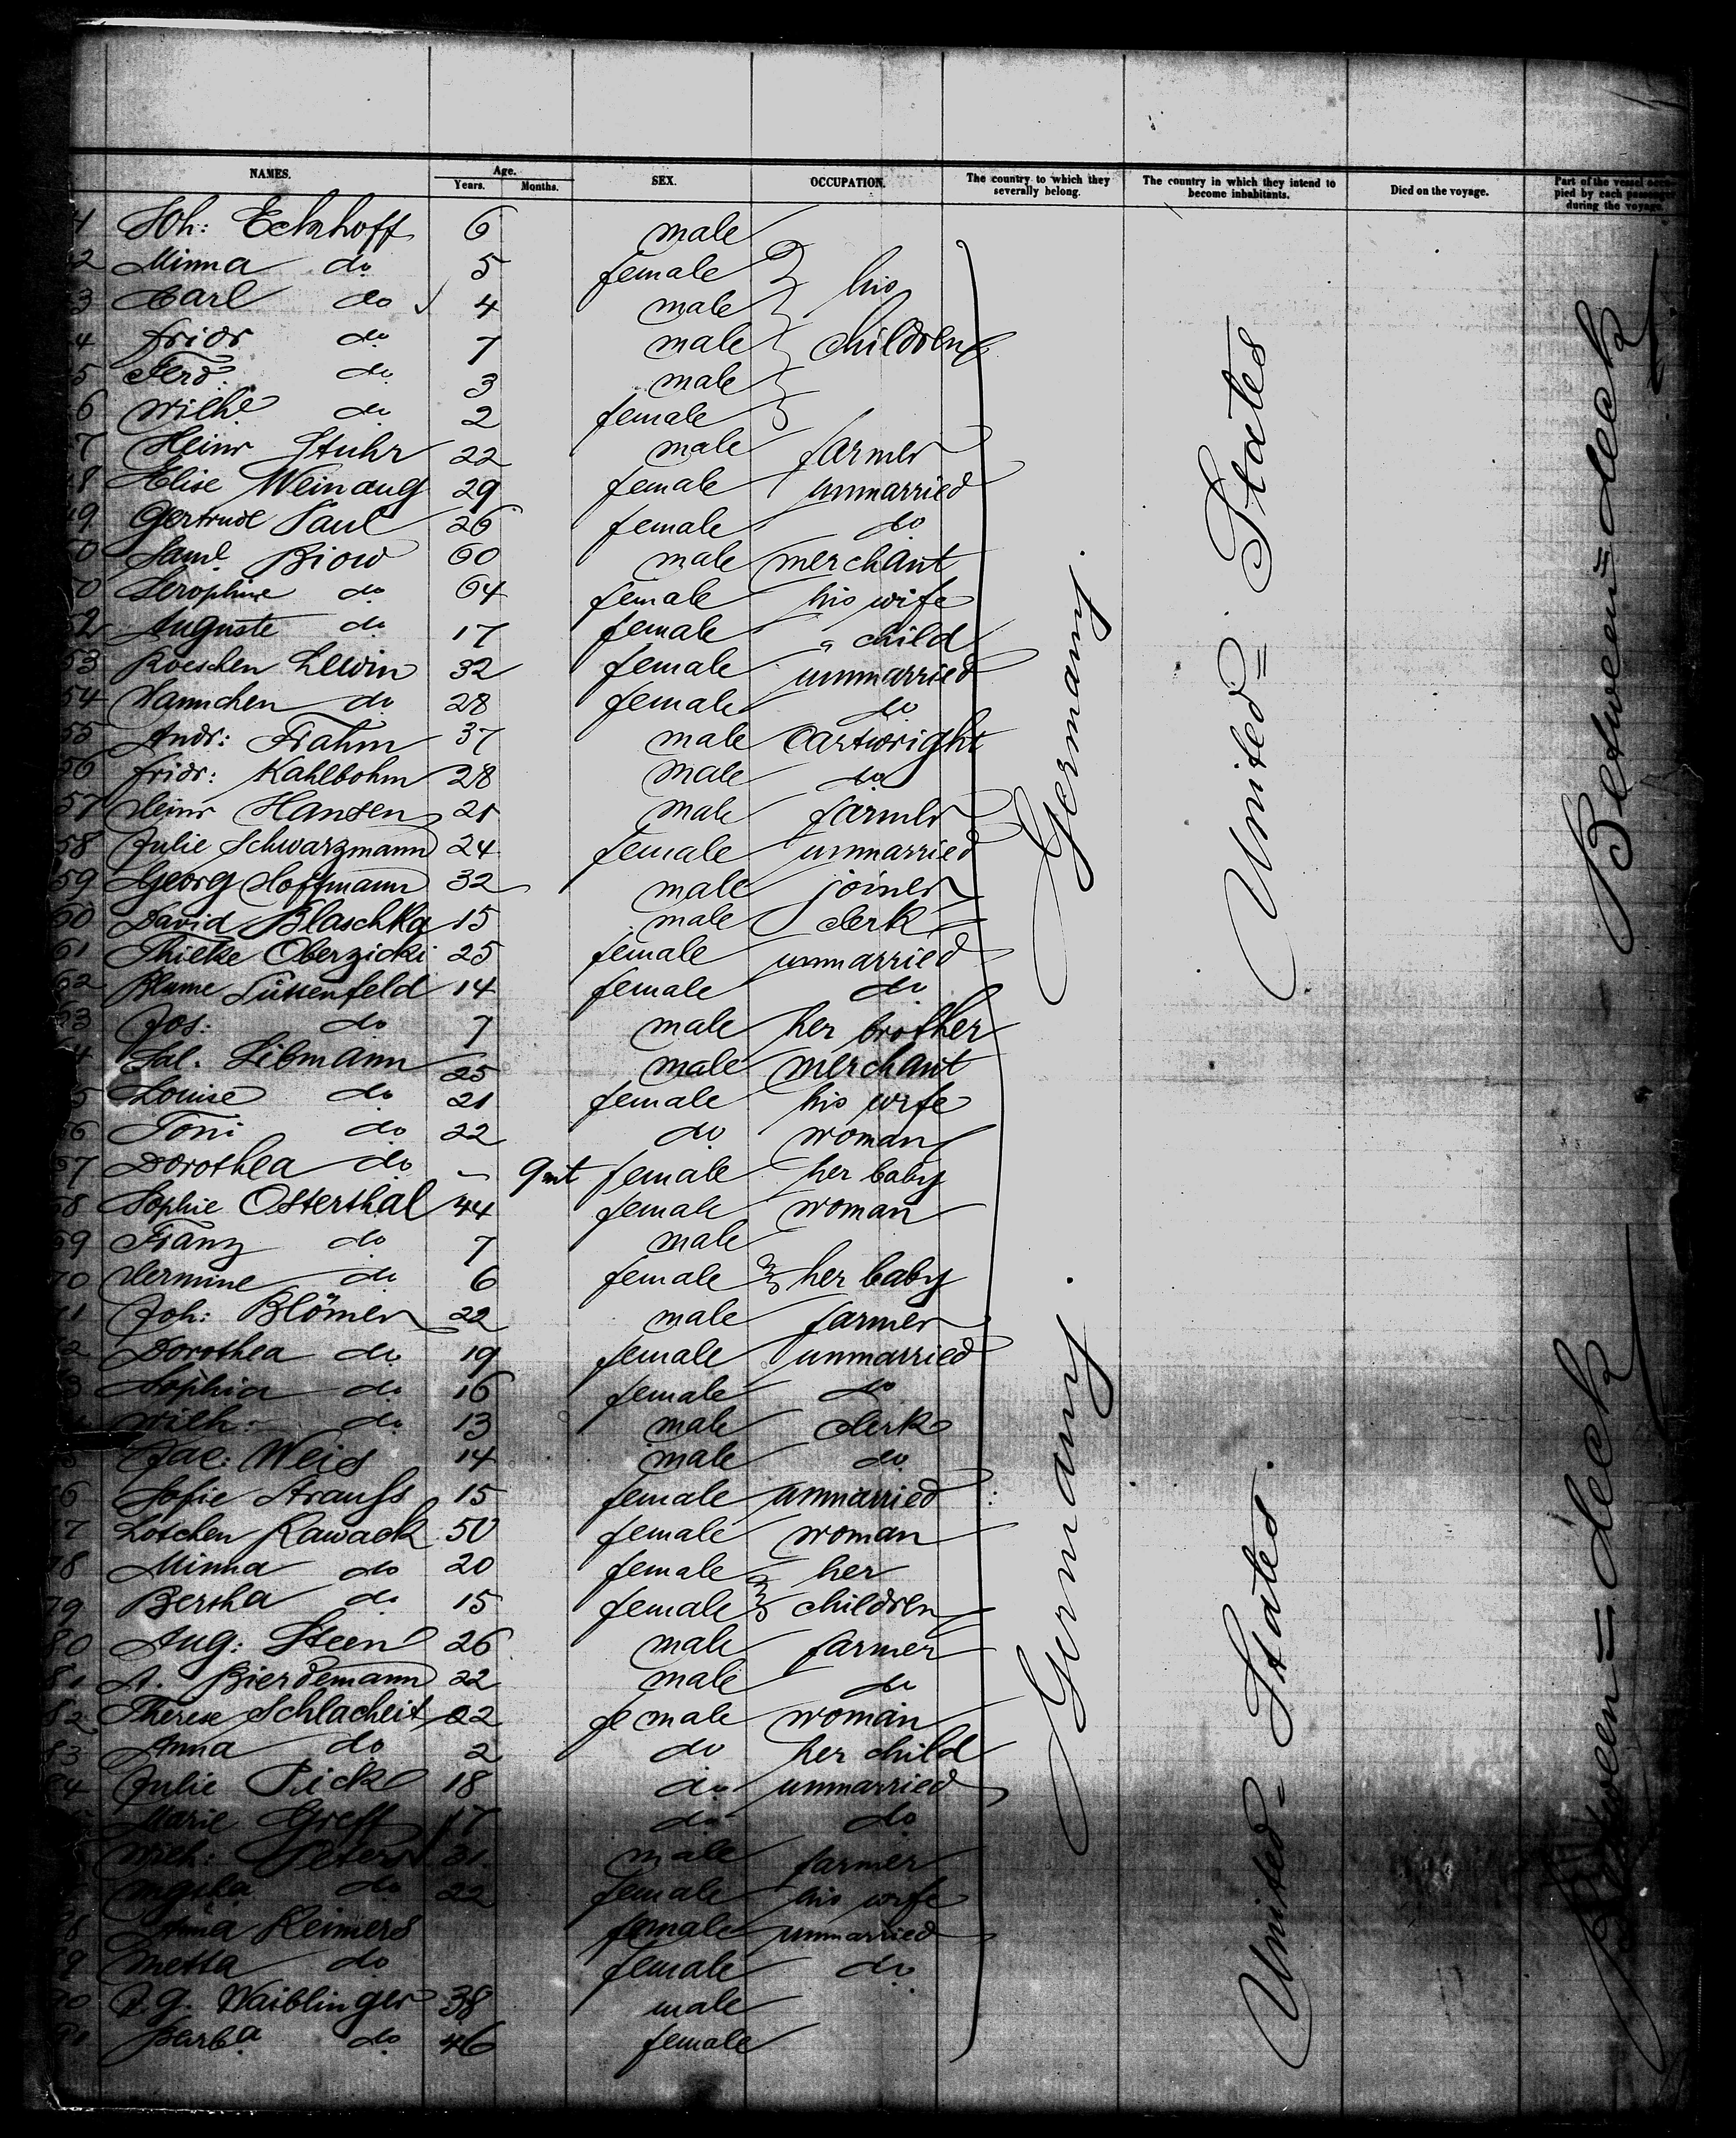 NAMES. Age. Years. Months. SEX. OCCUPATION. The country to which they severally belong. The country in which they intend to become inhabitants. Died on the voyage. Part of the vessel occupied by each passenger during the voyage.
Joh: Eckhoff 6 male
Minna do 5 female his
Carl do 4 male
Fridr do 7 male children
Ferd. do 3 male
Wilhe do 2 female
Heinr Stuhr 22 male farmer
Elise Weinaug 29 female unmarried
49 Gertrude Paul 26 female do
50 Saml Biow 60 male merchant
Serophine do 64 female his wife
52 Auguste do 17 female " child
53 Roeschen Lewin 32 female unmarried
54 Hannchen do 28 female do
55 Andr: Frahm 37 male cartwright
56 Fridr: Kahlbohm 28 male do
57 Heinr Hansen 21 male farmer
58 Julie Schwarzmann 24 female unmarried
59 Georg Hoffmann 32 male joiner
60 David Blaschka 15 male clerk
61 Thielke Oberzicki 25 female unmarried
62 Blume Lüssenfeld 14 female do
63 Jos: do 7 male her brother
Sal. Libmann 25 male merchant
Louise do 21 female his wife
Toni do 22 do woman
67 Dorothea do 9 mt female her baby
68 Sophie Osterthal 44 female woman
69 Franz do 7 male
70 Hermine do 6 female her baby
Joh: Blömer 22 male farmer
Dorothea do 19 female unmarried
Sophia do 16 female do
Wilh: do 13 male clerk
Jac: Weis 14 male do
Sofie Straufs 15 female unmarried
Lotchen Rawack 50 female woman
78 Minna do 20 female her
79 Bertha do 15 female children
80 Aug: Steen 26 male farmer
81 A. Bierdemann 22 male do
82 Therese Schlacheit 22 female woman
83 Anna do 2 do her child
84 Julie Pick 18 do unmarried
Marie Greff 17 do do
Peters 31 male farmer
do 22 female his wife
Anna Reimers female unmarried
Metta do female do
J.G. Waiblinger 38 male
Barba do 46 female
Germany.
Germany.
United = States
United = States.
Between = deck
Between = deck